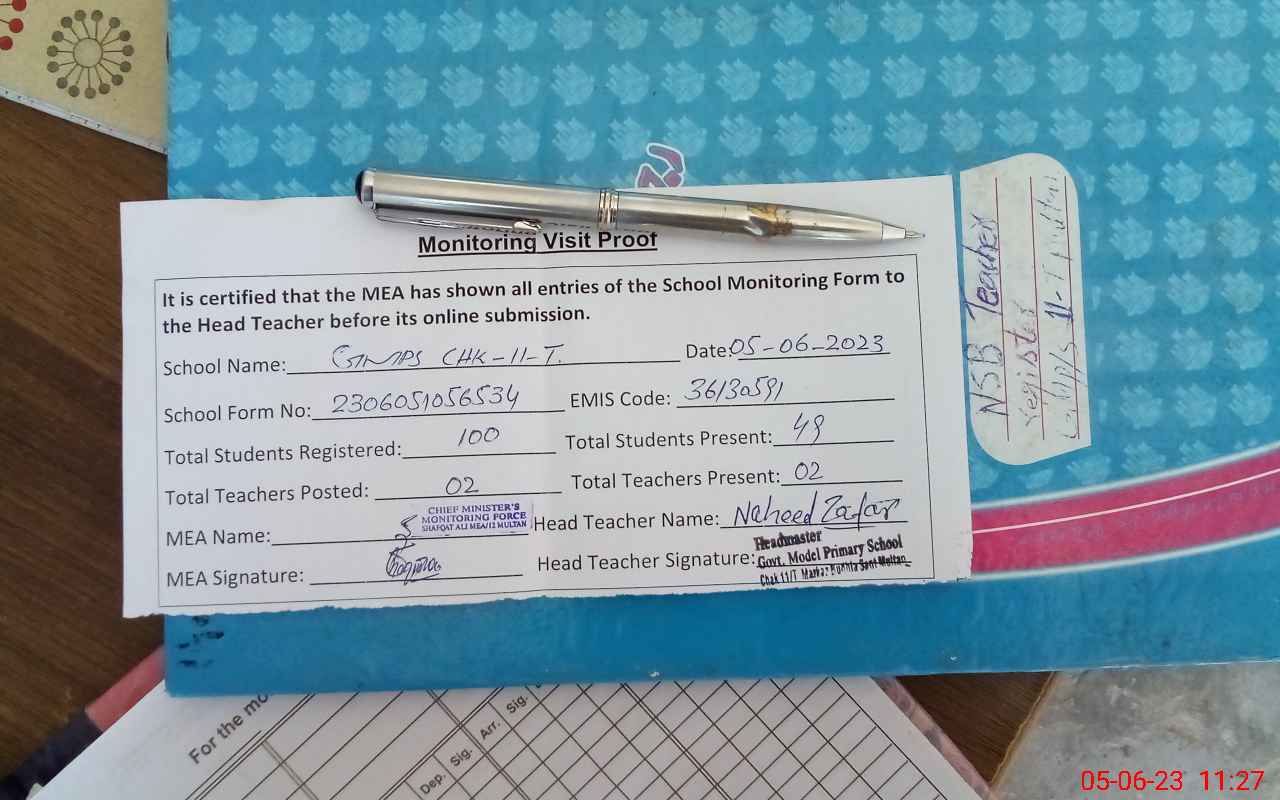 Monitoring Visit Proof
It is certified that the MEA has shown all entries of the School Monitoring Form to
the Head Teacher before its online submission.
School Name: GMPS CHK-11-T. Date: 05-06-2023
School Form No: 2306051056534 EMIS Code: 36130591
Total Students Registered: 100 Total Students Present: 49
Total Teachers Posted: 02 Total Teachers Present: 02
CHIEF MINISTER'S
MONITORING FORCE
SHAFQAT ALI MEA/12 MULTAN
MEA Name: Head Teacher Name: Naheed Zafar
MEA Signature: Head Teacher Signature:
Headmaster
Govt. Model Primary School
Chak 11/T Markaz Multan
NSB Teacher
register
11-T Multan
For the mo
Dep. Sig. Arr. Sig.
05-06-23 11:27